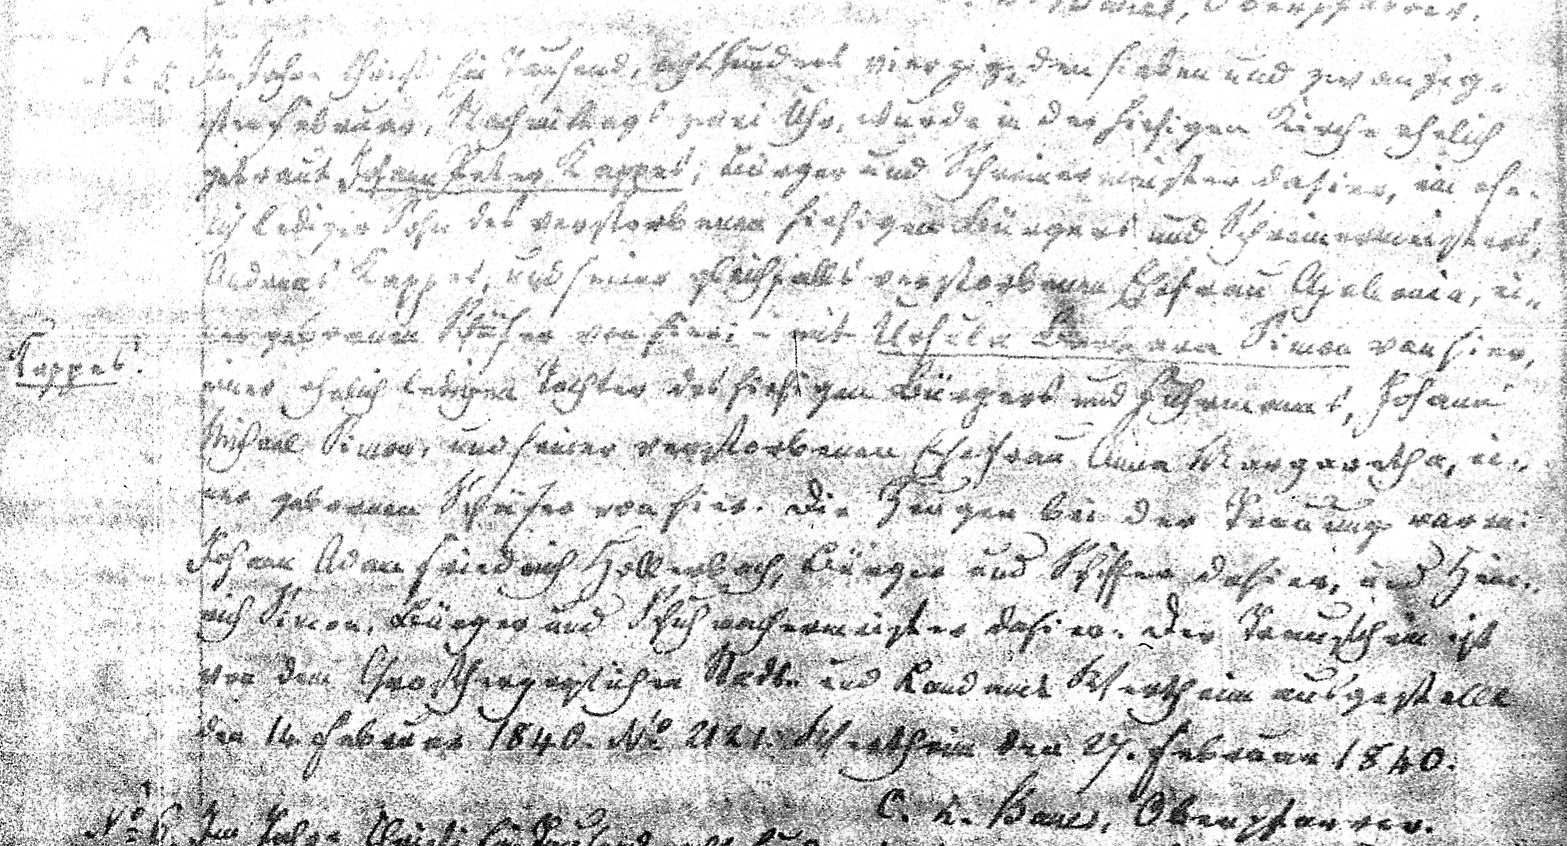 Oberpfarrer.
Nº 5. Im Jahre Christi ein Tausend, acht hundert vierzig, den sieben und zwanzig-
sten Februar, Nachmittags zwei Uhr, wurde in der hiesigen Kirche ehelich
getraut Johann Peter Kappes, Bürger und Schreinermeister dahier, ein ehe-
lich lediger Sohn des verstorbenen hiesigen Bürgers und Schreinermeisters,
Andreas Kappes, und seiner gleichfalls verstorbenen Ehefrau Apolonia, ei-
ner gebornen Schäfer von hier; – mit Ursula Barbara Simon von hier,
Kappes.
einer ehelich ledigen Tochter des hiesigen Bürgers und Fuhrmanns, Johann
Michael Simon, und seiner verstorbenen Ehefrau Anna Margaretha, ei-
ner gebornen Schäfer von hier. Die Zeugen bei der Trauung waren:
Johann Adam Friedrich Hollerbach, Bürger und Schiffer dahier, und Hein-
rich Simon, Bürger und Schuhmachermeister dahier. Der Trauschein ist
von dem Großherzoglichen Stadt- und Landamt Wertheim ausgestellt
den 14. Februar 1840. Nº 2121. Wertheim den 27. Februar 1840.
C. L. Oberpfarrer.
Nº 6. Im Jahre Christi ein Tausend acht